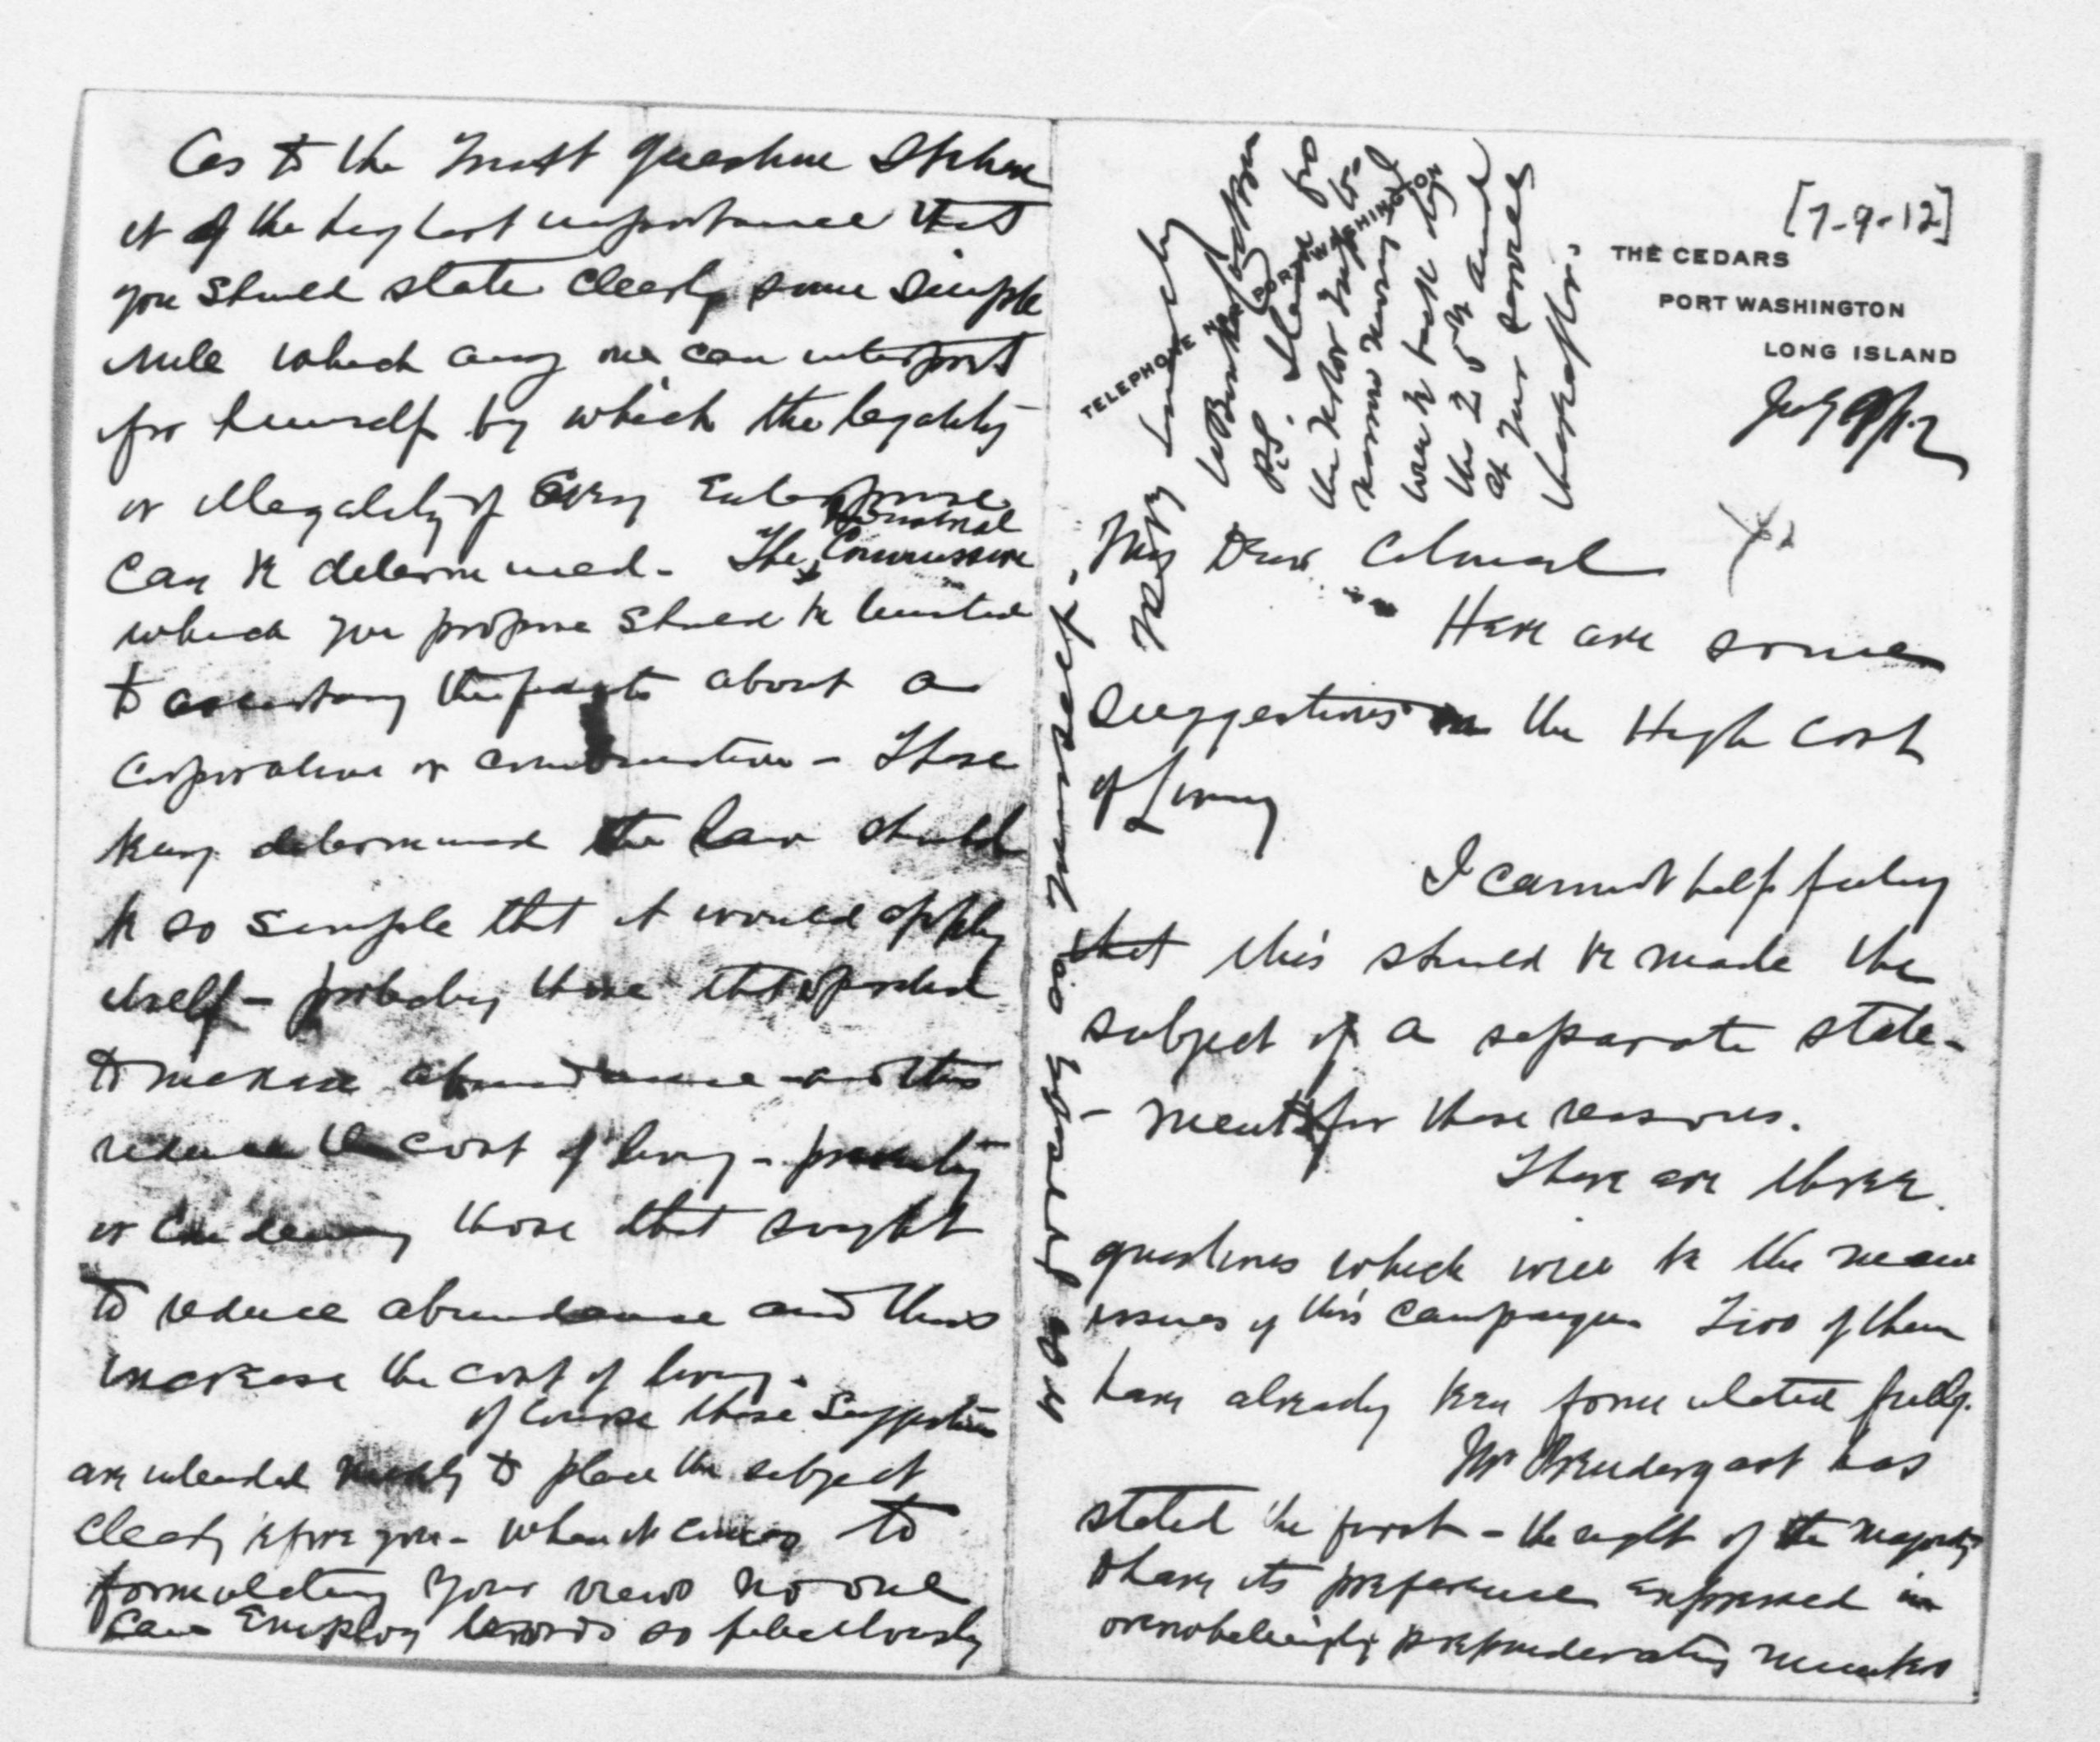 [7-9-12]
THE CEDARS
PORT WASHINGTON
LONG ISLAND
TELEPHONE
PORT WASHINGTON
July 9/12
My Dear Colonel
Here are some
suggestions on the High Cost
of Living
I cannot help feeling
that this should be made the
subject of a separate state-
- ment for these reasons.
There are three
questions which will be the main
issues of this campaign Two of them
have already been formulated fully.
Mr Prendergast has
stated the first - the right of the majority
to have its preference expressed in
overwhelmingly preponderating numbers
As to the Trust question I think
it of the highest importance that
you should state clearly some simple
rule which any one can interpret
for himself by which the legality
or illegality of every Enterprise
can be determined - The Industrial Commission
which you propose should be limited
to ascertaining the facts about a
corporation or combination - These
being determined the law should
be so simple that it would apply
itself - probably those that operated
to increase abundance and thus
reduce the cost of living - permitting
or condemning those that sought
to reduce abundance and thus
increase the cost of living.
Of course these suggestions
are intended merely to place the subject
clearly before you - when it comes to
formulating your views no one
can employ words so felicitously
or so forcefully as yourself.
Very sincerely
P.S. I leave for
the Motor Trip to-
morrow morning and
will be back by
the 25th and
at your service
thereafter.